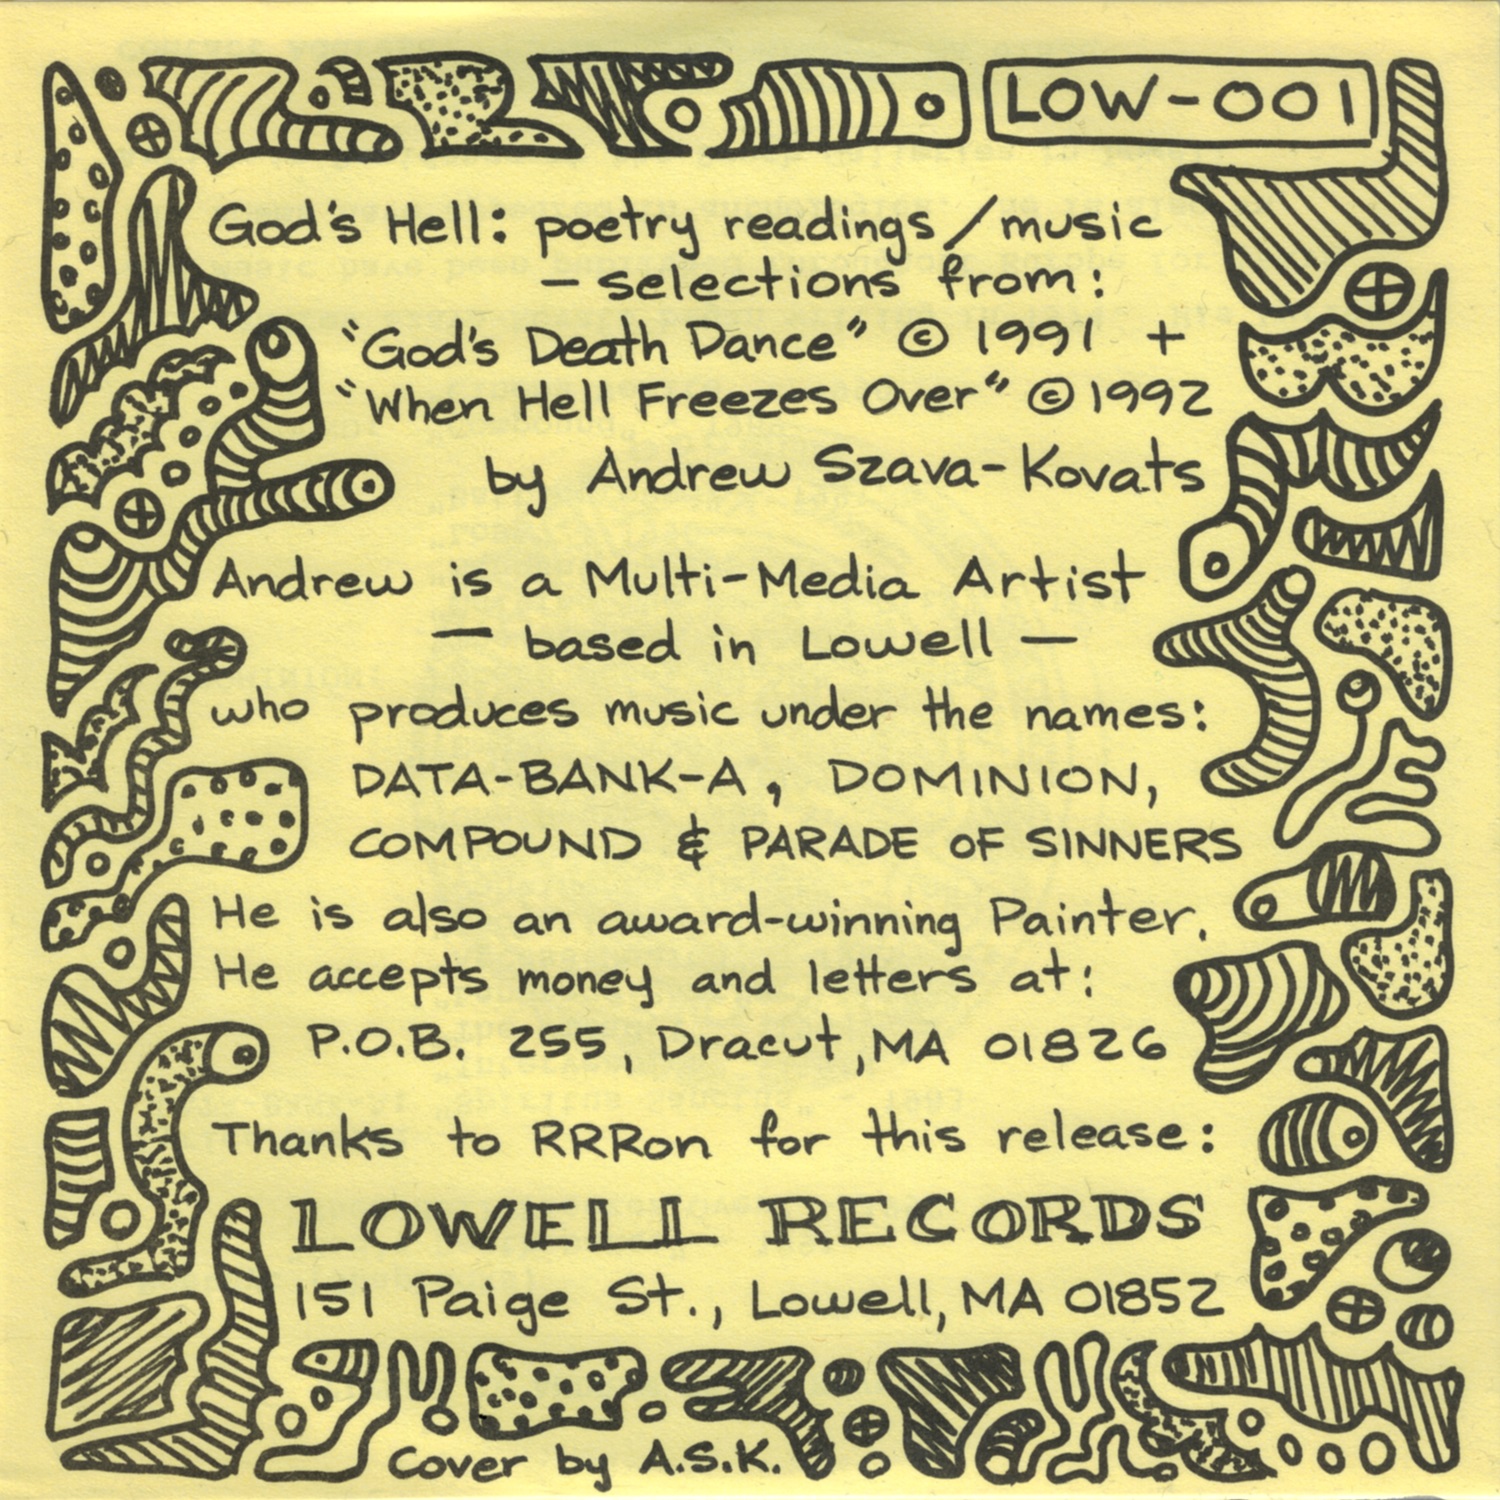 LOW-001
God's Hell: poetry readings/music
- selections from:
"God's Death Dance" © 1991 +
"When Hell Freezes Over" © 1992
by Andrew Szava-Kovats
Andrew is a Multi-Media Artist
— based in Lowell —
who produces music under the names:
DATA-BANK-A, DOMINION,
COMPOUND & PARADE OF SINNERS
He is also an award-winning Painter.
He accepts money and letters at:
P.O.B. 255, Dracut, MA 01826
Thanks to RRRon for this release:
LOWELL RECORDS
151 Paige St., Lowell, MA 01852
Cover by A.S.K.